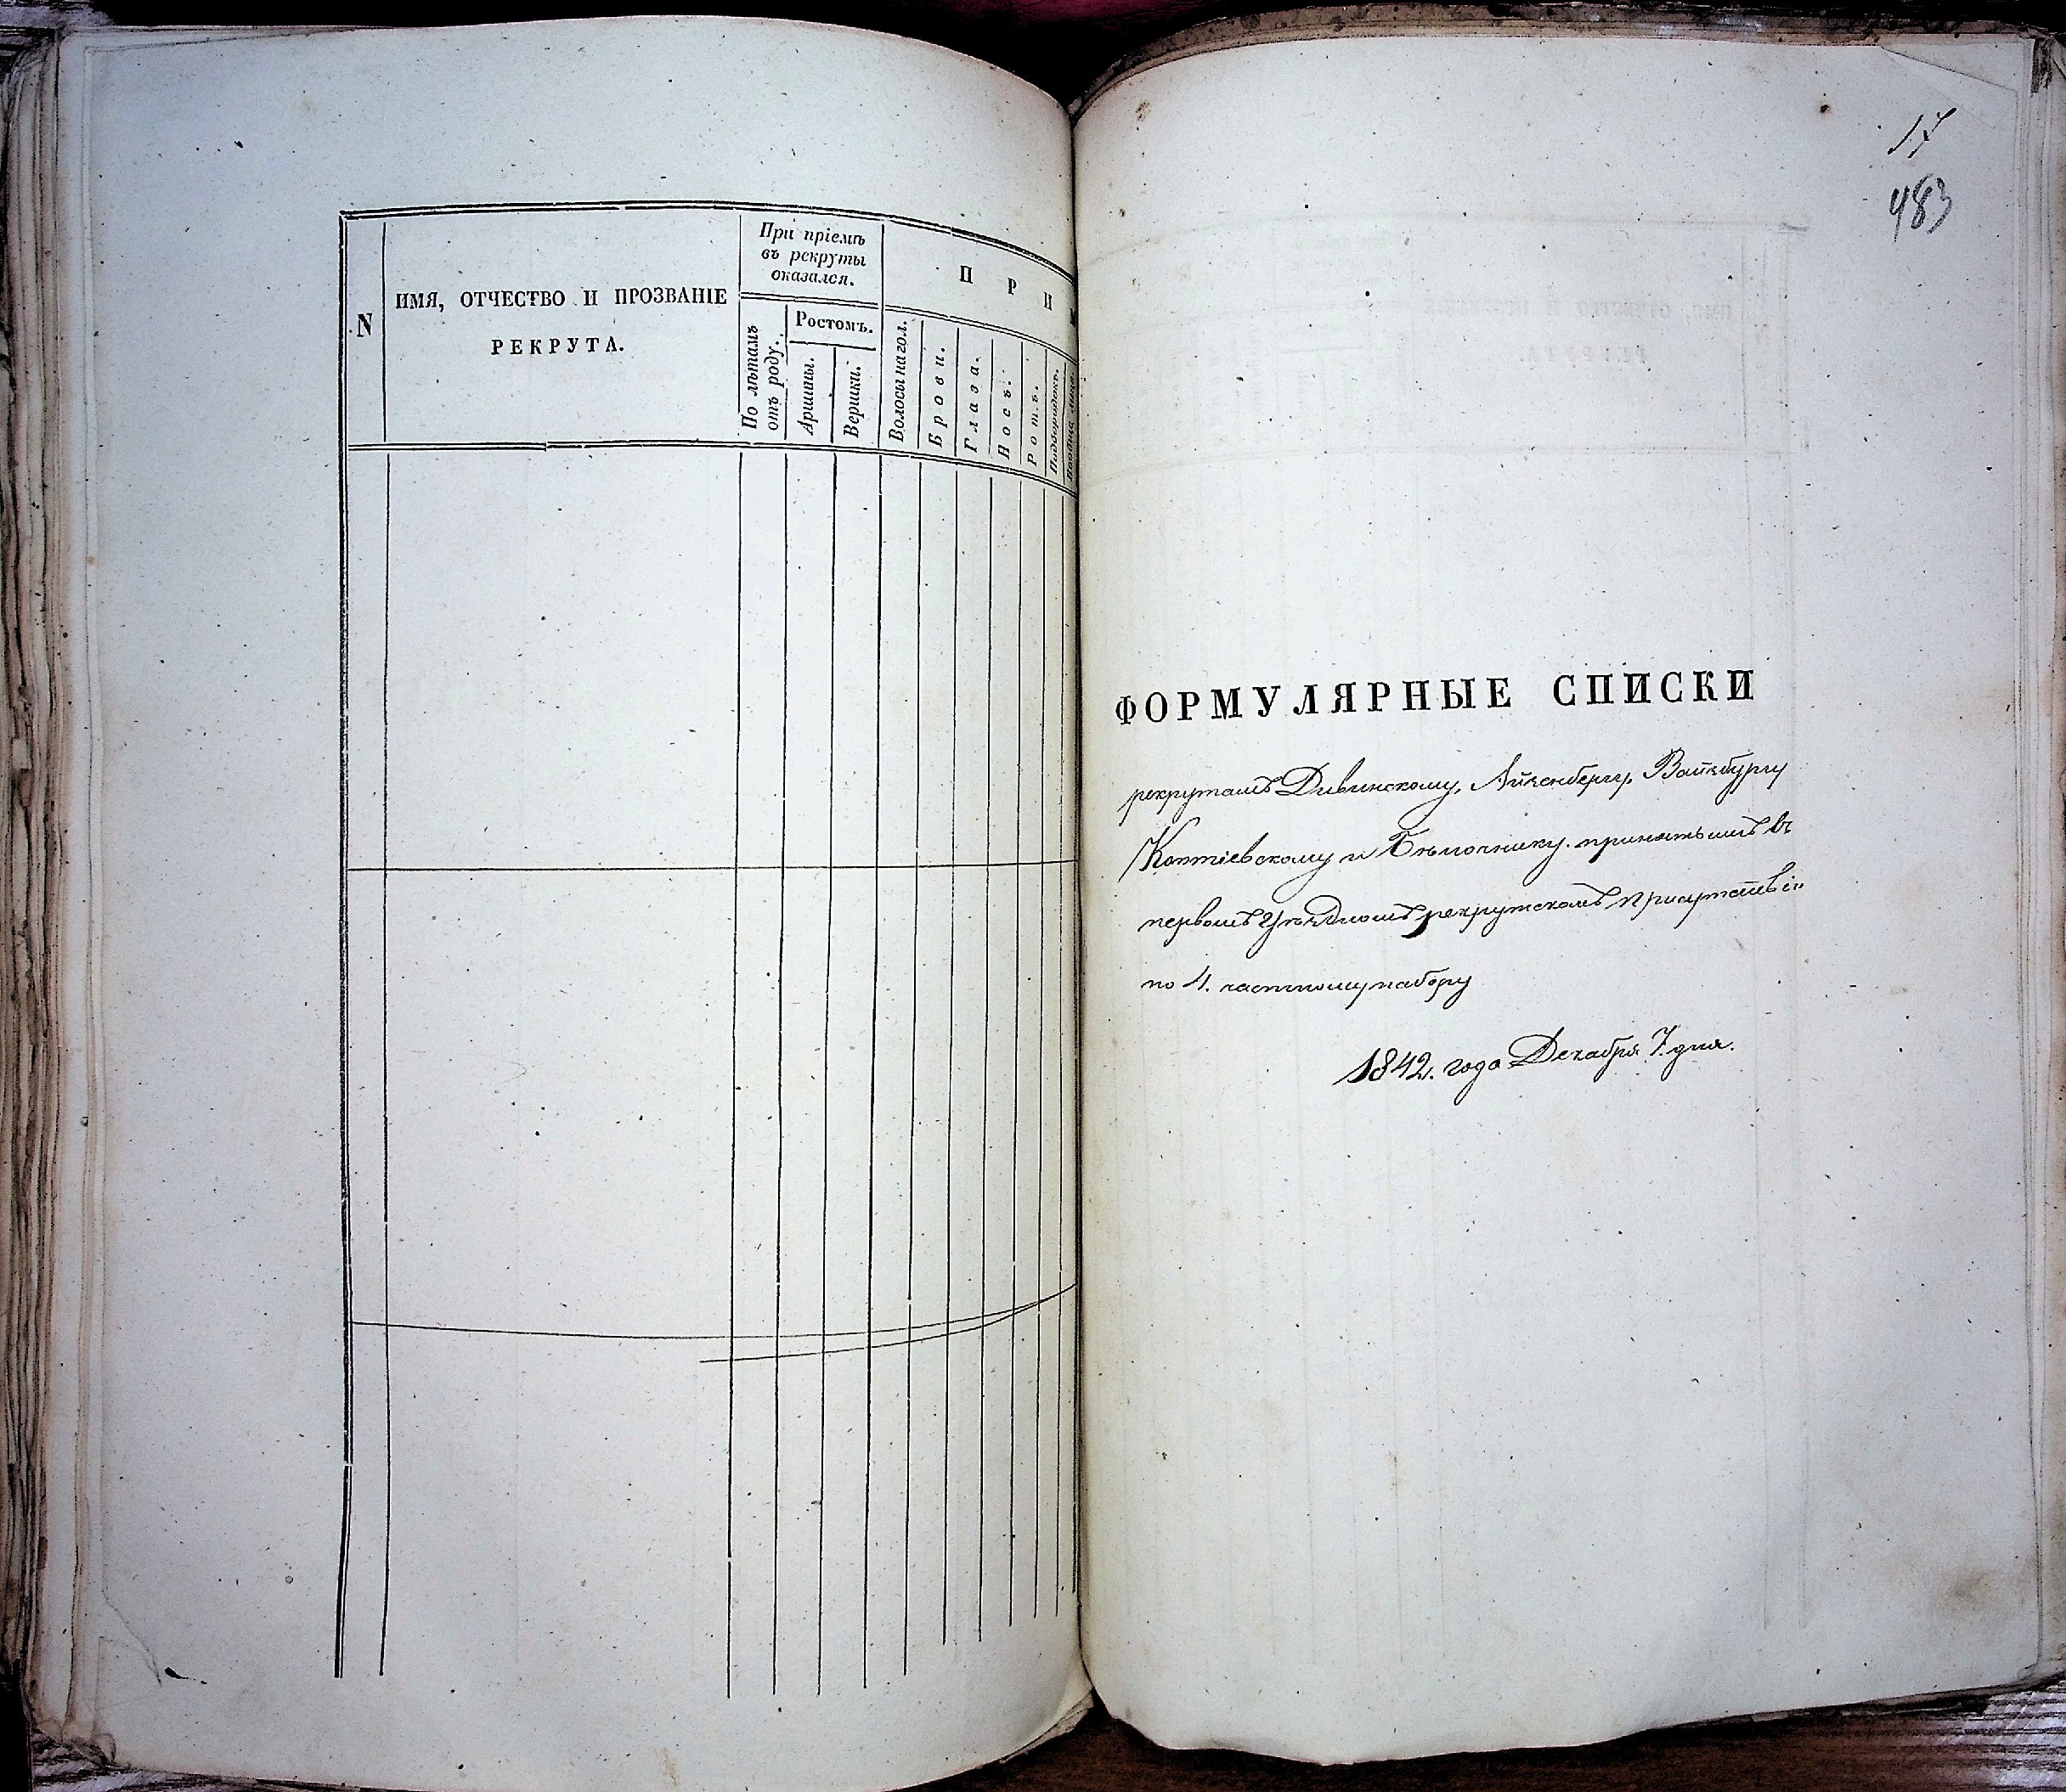 N
ИМЯ, ОТЧЕСТВО И ПРОЗВАНІЕ
РЕКРУТА.
При пріемѣ
въ рекруты
оказался.
По лѣтамъ
отъ роду.
Ростомъ.
Аршины.
Вершки.
П Р И
Волосы на гол.
Брови.
Глаза.
Носъ.
Ротъ.
Подбородокъ.
Вообще лице.
483
ФОРМУЛЯРНЫЕ СПИСКИ
рекрутамъ Дивинскому, Айзенбергу, Вайсбургу
Коптіевскому и принятымъ въ
первомъ Уѣздномъ рекрутскомъ Присутствіи
по 4. частному набору
1842. года Декабря 7. дня.